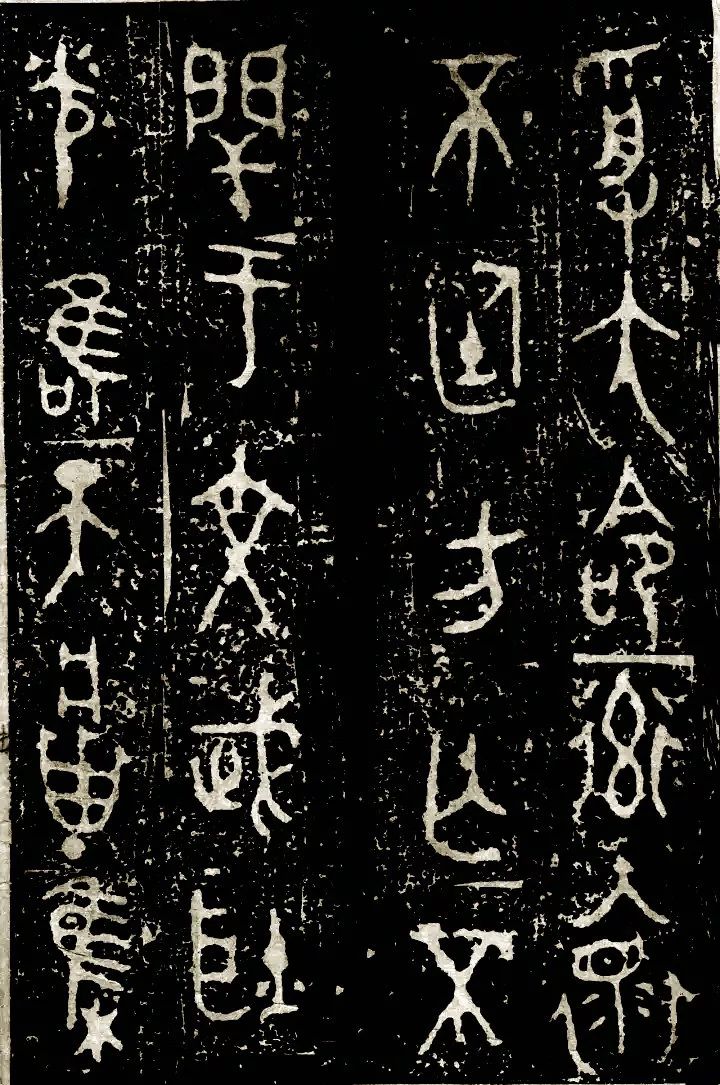 受大命率褱
不廷方亡不
閈于文武耿
光唯天集